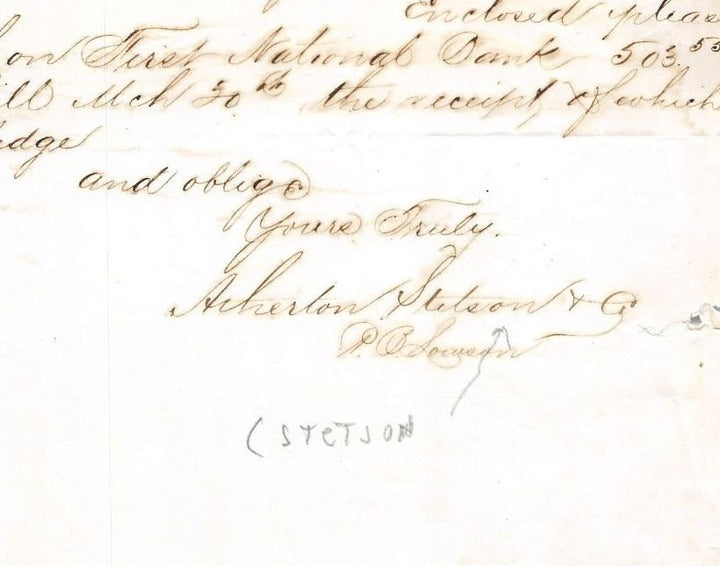 Enclosed pleas
on First National Bank 503.53
ill Mch 30th the receipt of which
edge
and oblige
Yours Truly.
Atherton Stetson & Co
P. B.
(STETSON